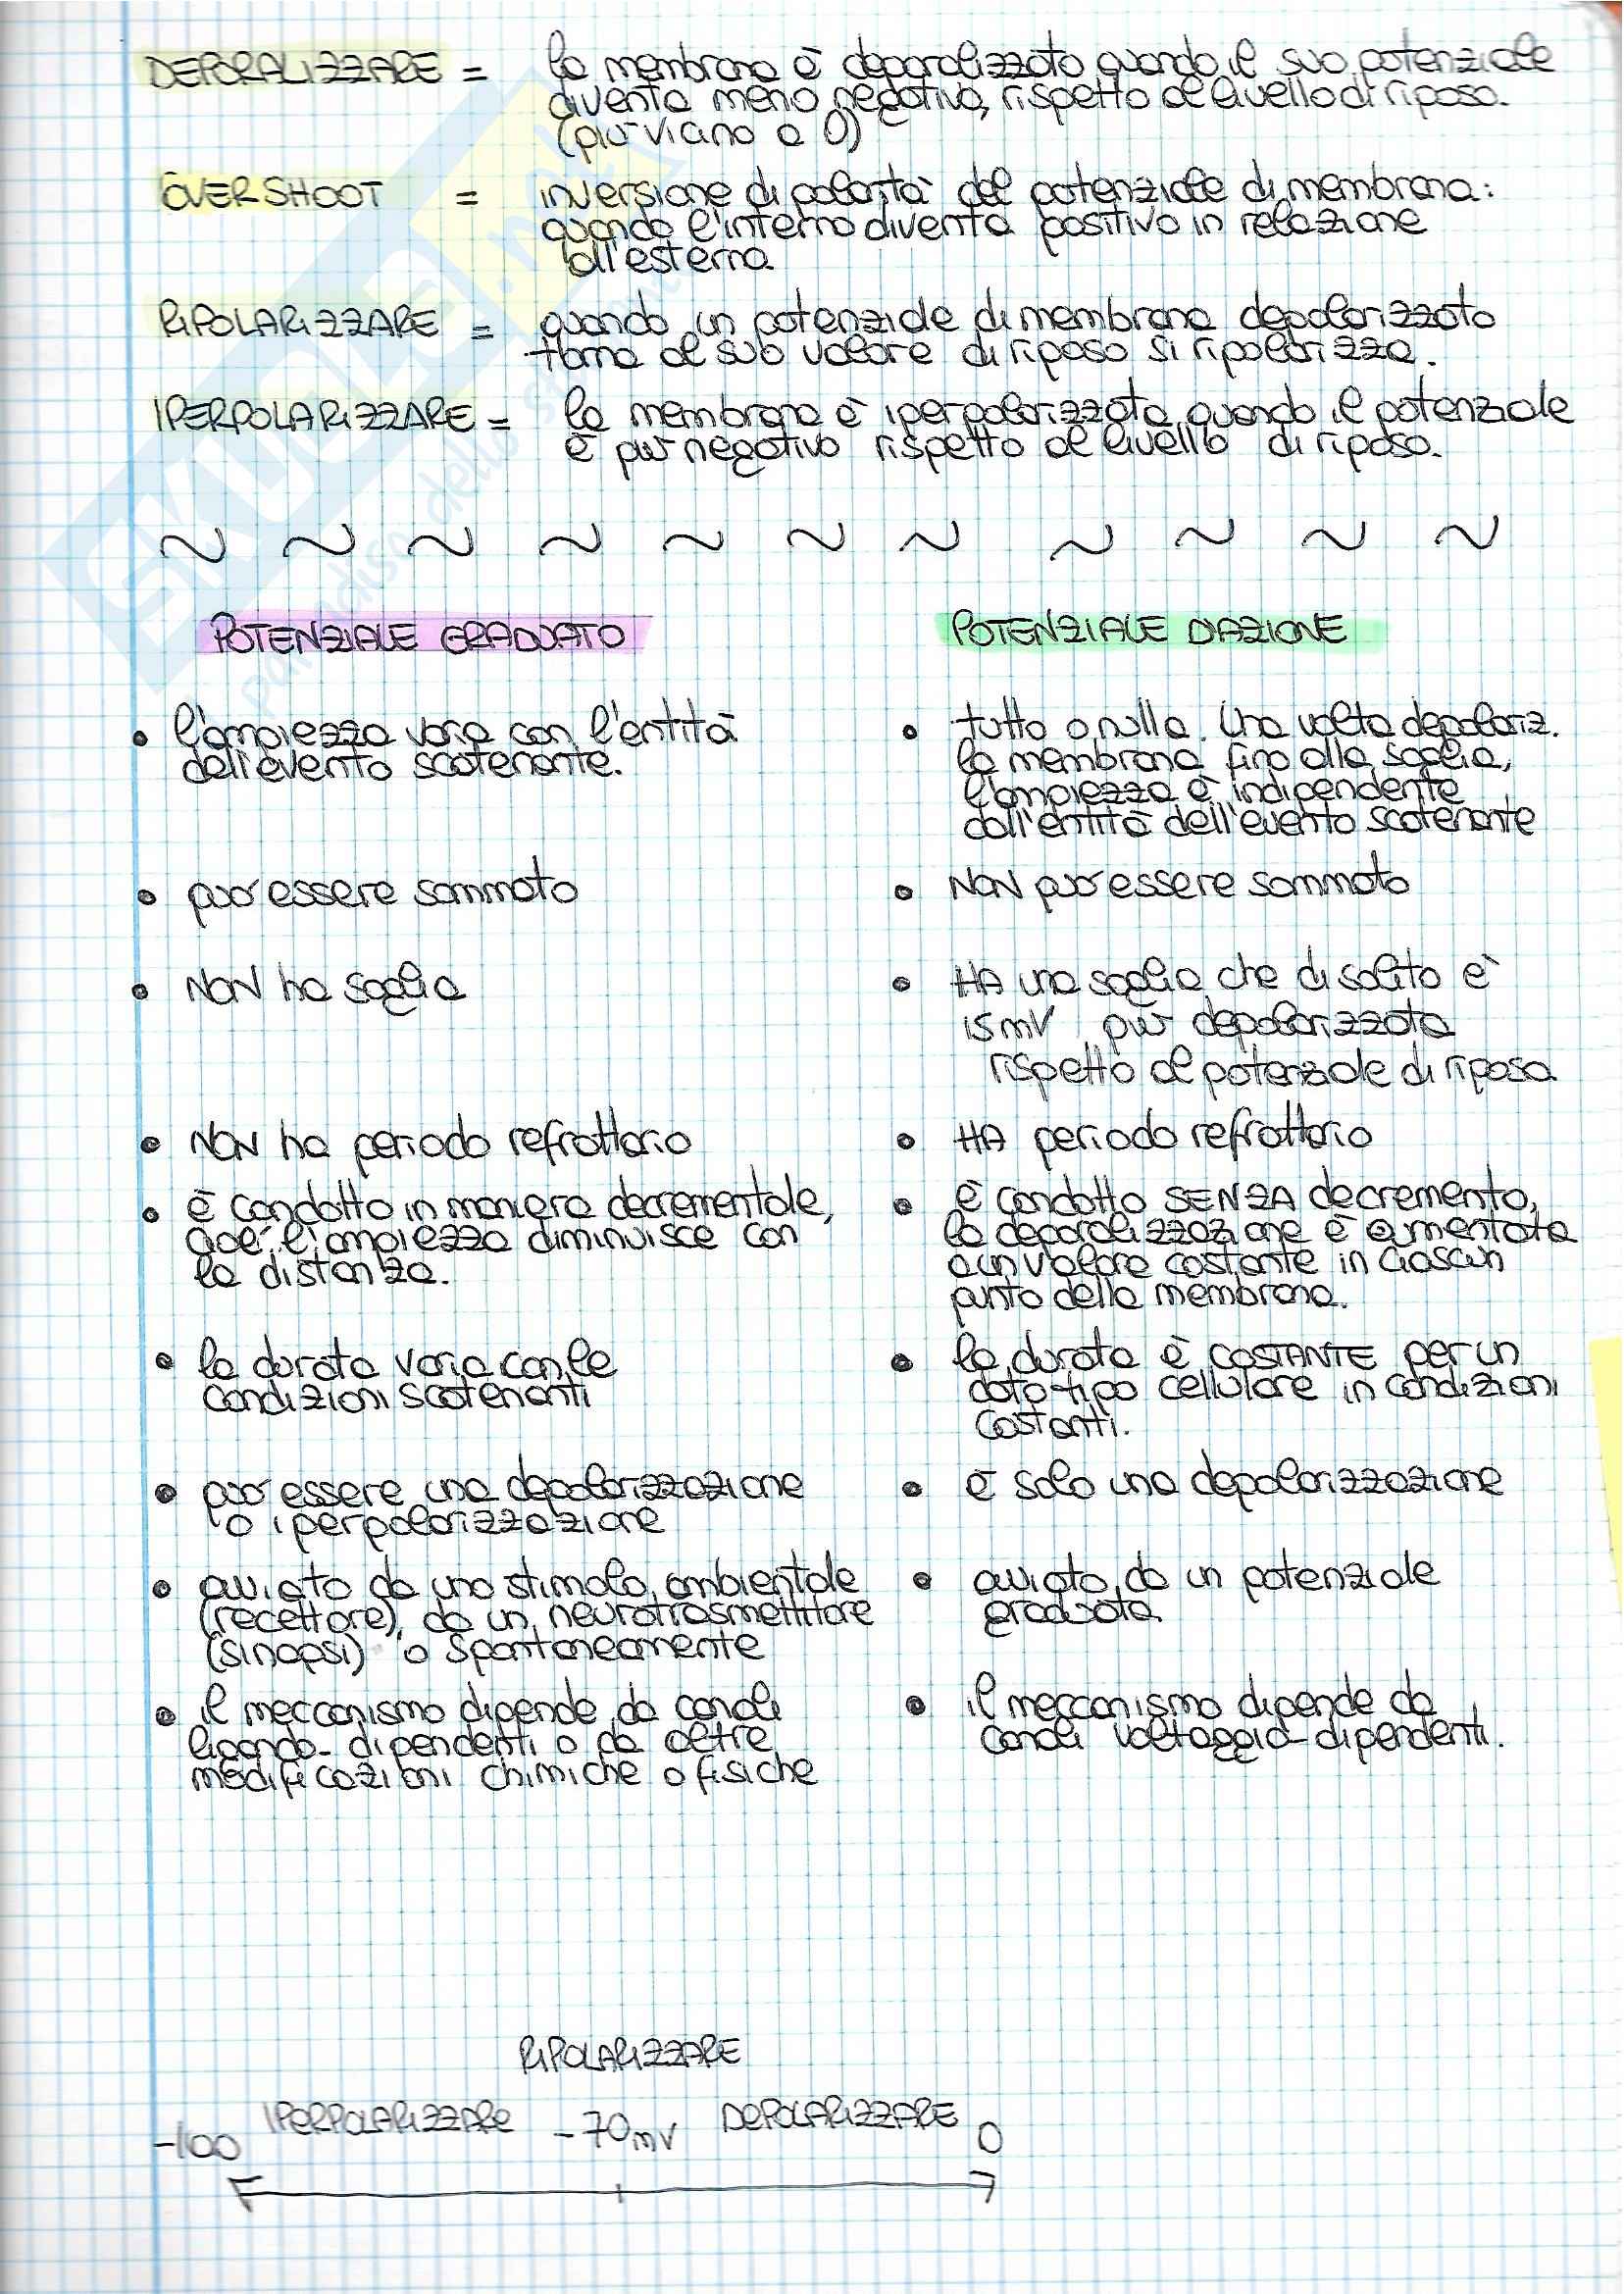 DEPORALIZZARE = la membrana è deporalizzata quando il suo potenziale
diventa meno negativo, rispetto al livello di riposo.
(più vicino a 0)
OVERSHOOT = inversione di polarità del potenziale di membrana:
quando l'interno diventa positivo in relazione
all'esterno.
RIPOLARIZZARE = quando un potenziale di membrana depolarizzato
torna al suo valore di riposo si ripolarizza.
IPERPOLARIZZARE = la membrana è iperpolarizzata quando il potenziale
è più negativo rispetto al livello di riposo.
~ ~ ~ ~ ~ ~ ~ ~ ~ ~ ~
POTENZIALE GRADUATO
• l'ampiezza varia con l'entità
dell'evento scatenante.
• può essere sommato
• NON ha soglia
• NON ha periodo refrattario
• è condotto in maniera decrementale,
cioè l'ampiezza diminuisce con
la distanza.
• la durata varia con le
condizioni scatenanti
• può essere una depolarizzazione
o iperpolarizzazione
• avviato da uno stimolo ambientale
(recettore), da un neurotrasmettitore
(sinapsi) o spontaneamente
• il meccanismo dipende da canali
ligando-dipendenti o da altre
modificazioni chimiche o fisiche
POTENZIALE D'AZIONE
• tutto o nulla. Una volta depolariz.
la membrana fino alla soglia,
l'ampiezza è indipendente
dall'entità dell'evento scatenante
• NON può essere sommato
• HA una soglia che di solito è
15 mV più depolarizzata
rispetto al potenziale di riposo.
• HA periodo refrattario
• è condotto SENZA decremento,
la deporalizzazione è aumentata
a un valore costante in ciascun
punto della membrana.
• la durata è COSTANTE per un
dato tipo cellulare in condizioni
costanti.
• è solo una depolarizzazione
• avviato da un potenziale
graduato.
• il meccanismo dipende da
canali voltaggio-dipendenti.
RIPOLARIZZARE
-100 IPERPOLARIZZARE -70mV DEPOLARIZZARE 0